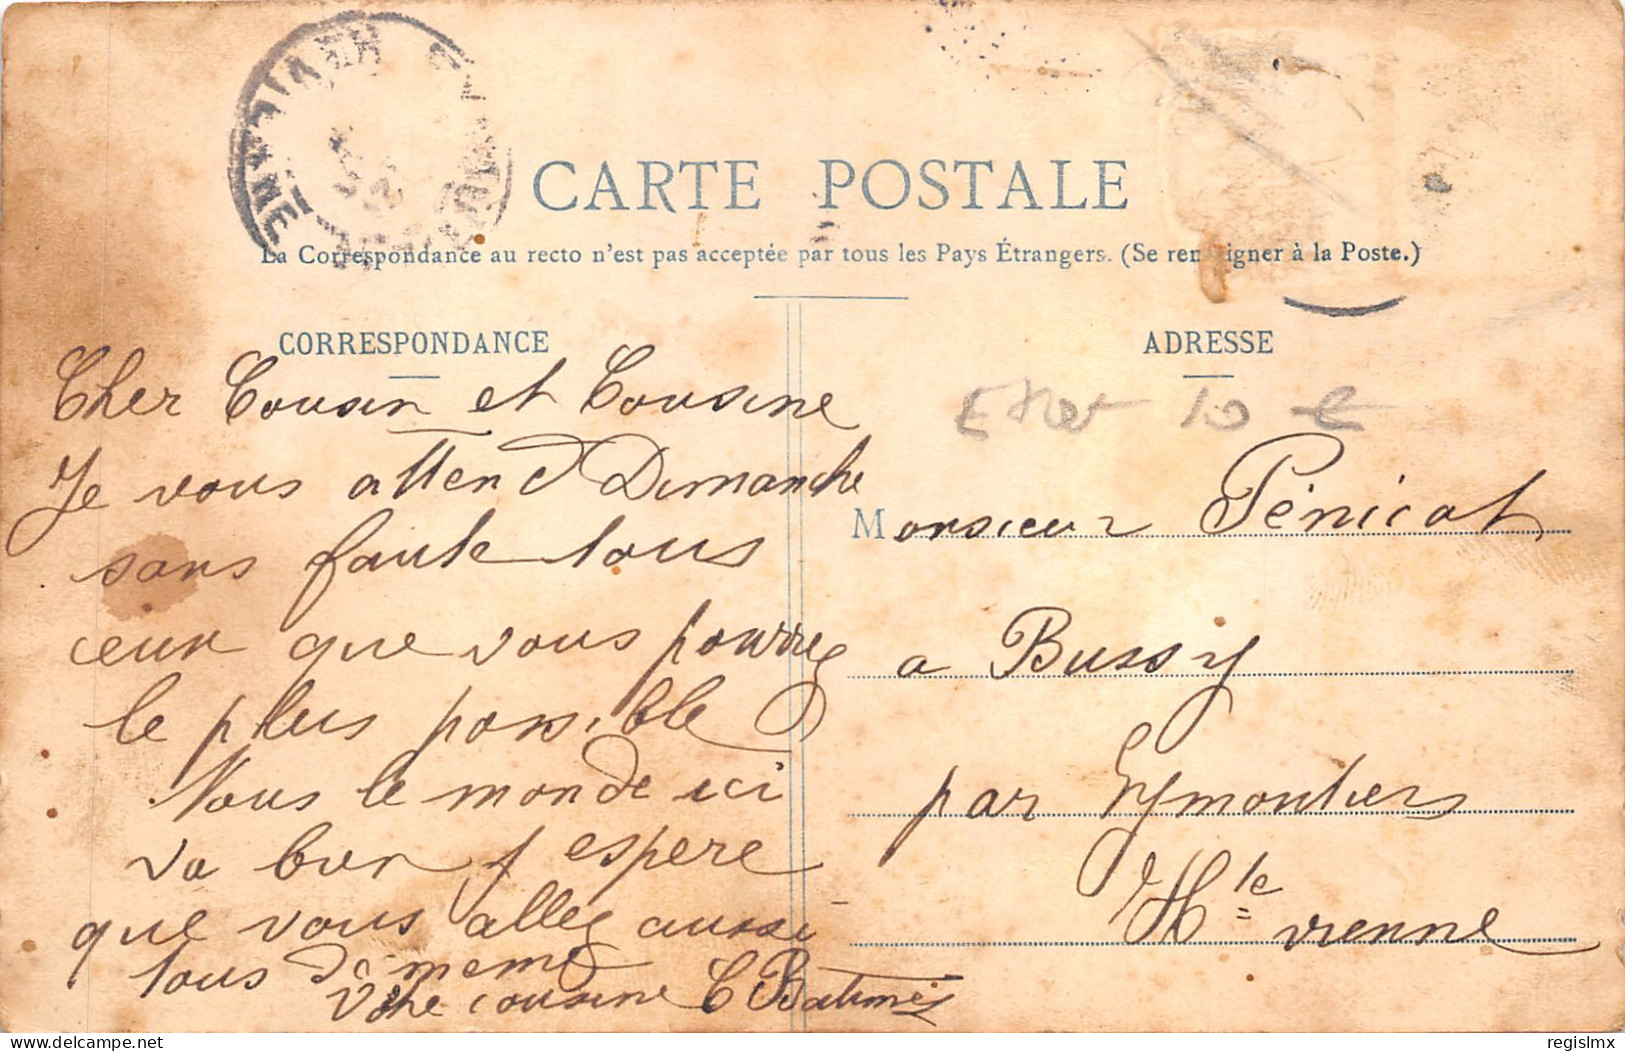 CARTE POSTALE
La Correspondance au recto n'est pas acceptée par tous les Pays Étrangers. (Se renseigner à la Poste.)
CORRESPONDANCE
Cher Cousin et Cousine
Je vous attend Dimanche
sans faute tous
ceux que vous pourrez
le plus possible
Tous le monde ici
va bien j espere
que vous allez aussi
tous de meme
Votre cousine C
ADRESSE
10 €
Monsieur Pénicot
a Bussy
par Eymoutiers
Hte vienne
delcampe.net
regislmx